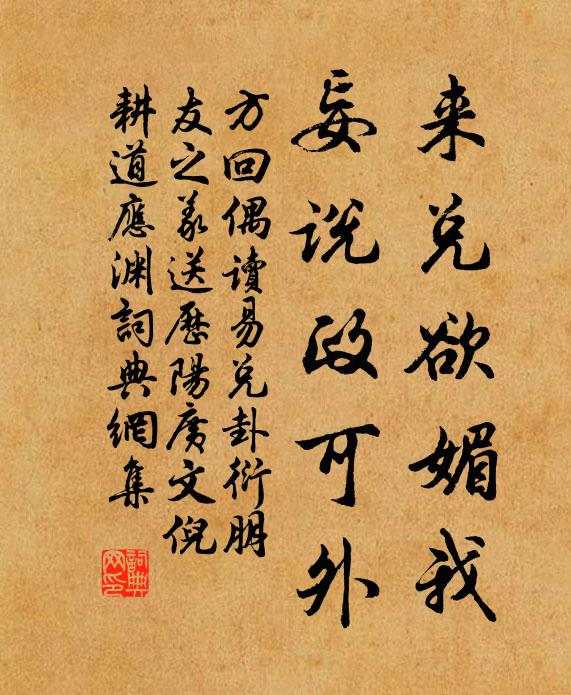 来兑欲媚我
妄说政可外
方回偶读易兑卦衍朋
友之义送历阳广文倪
耕道应渊詞典網集
詞典网印